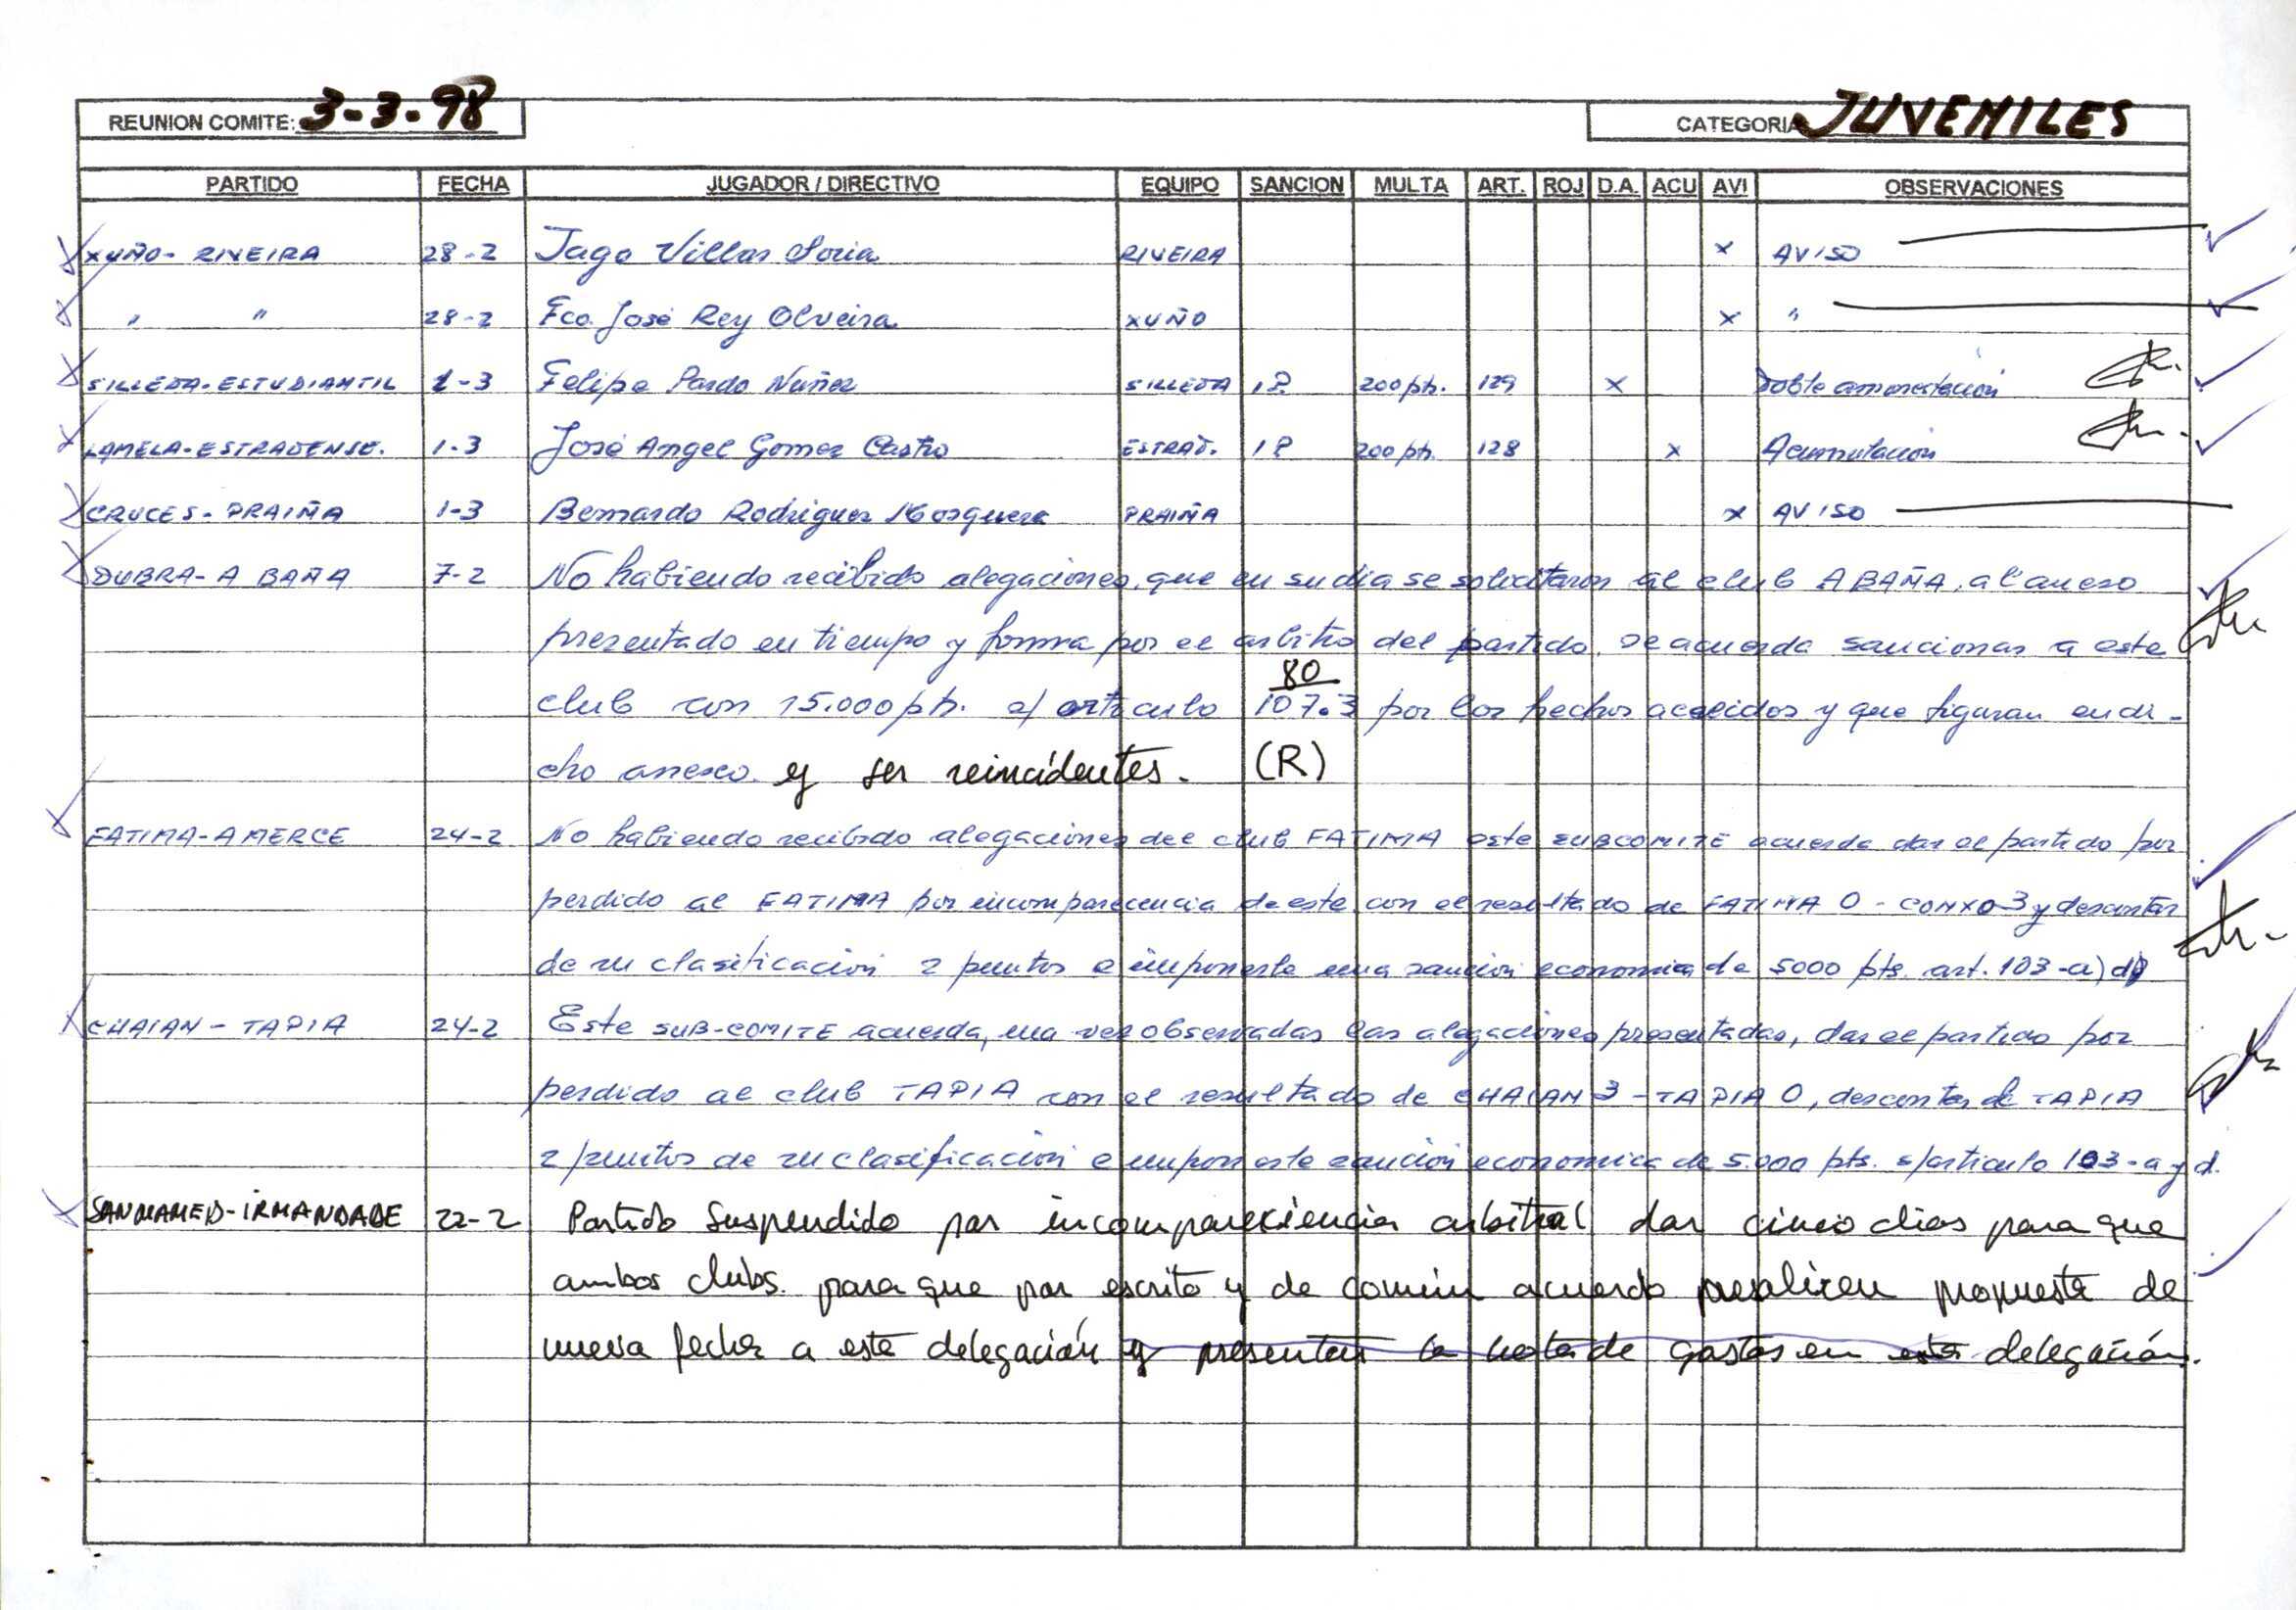 REUNION COMITE: 3-3-98
CATEGORIA JUVENILES
PARTIDO FECHA JUGADOR / DIRECTIVO EQUIPO SANCION MULTA ART. ROJ D.A. ACU AVI OBSERVACIONES
XUÑO- RIVEIRA 28-2 Iago Villar Soria RIVEIRA x AVISO
" " 28-2 Fco. José Rey Olveira XUÑO x "
SILLEDA-ESTUDIANTIL 1-3 Felipe Pardo Nuñez SILLEDA 1P. 200 pts. 129 x Doble amonestación
LAMELA-ESTRADENSE. 1-3 José Angel Gomez Castro ESTRAD. 1P 200 pts. 128 x Acumulación
CRUCES- PRAIÑA 1-3 Bernardo Rodriguez Mosquera PRAIÑA x AVISO
DUBRA- A BAÑA 7-2 No habiendo recibido alegaciones, que en su dia se solicitaron al club A BAÑA, al anexo
presentado en tiempo y forma por el arbitro del partido. se acuerda sancionar a este
80
club con 15.000 pts. a/ articulo 107.3 por los hechos acaecidos y que figuran en di-
cho anexo. y ser reincidentes. (R)
FATIMA-A MERCE 24-2 No habiendo recibido alegaciones del club FATIMA este SUBCOMITE acuerda dar el partido por
perdido al FATIMA por incomparecencia de este con el resultado de FATIMA 0 - CONXO 3 y descontar
de su clasificación 2 puntos e imponerle una sanción economica de 5000 pts. art. 103-a) d)
CHAIAN - TAPIA 24-2 Este SUB-COMITE acuerda, una vez observadas las alegaciones presentadas, dar el partido por
perdido al club TAPIA con el resultado de CHAIAN 3 - TAPIA 0, descontar de TAPIA
2 puntos de su clasificación e imponerle sanción economica de 5.000 pts. s/articulo 103-a y d.
SANMAMED-IRMANDADE 22-2 Partido Suspendido por incomparecencia arbitral dar cinco dias para que
ambos clubs. para que por escrito y de común acuerdo realicen propuesta de
nueva fecha a esta delegación y presenten la nota de gastos en esta delegación.